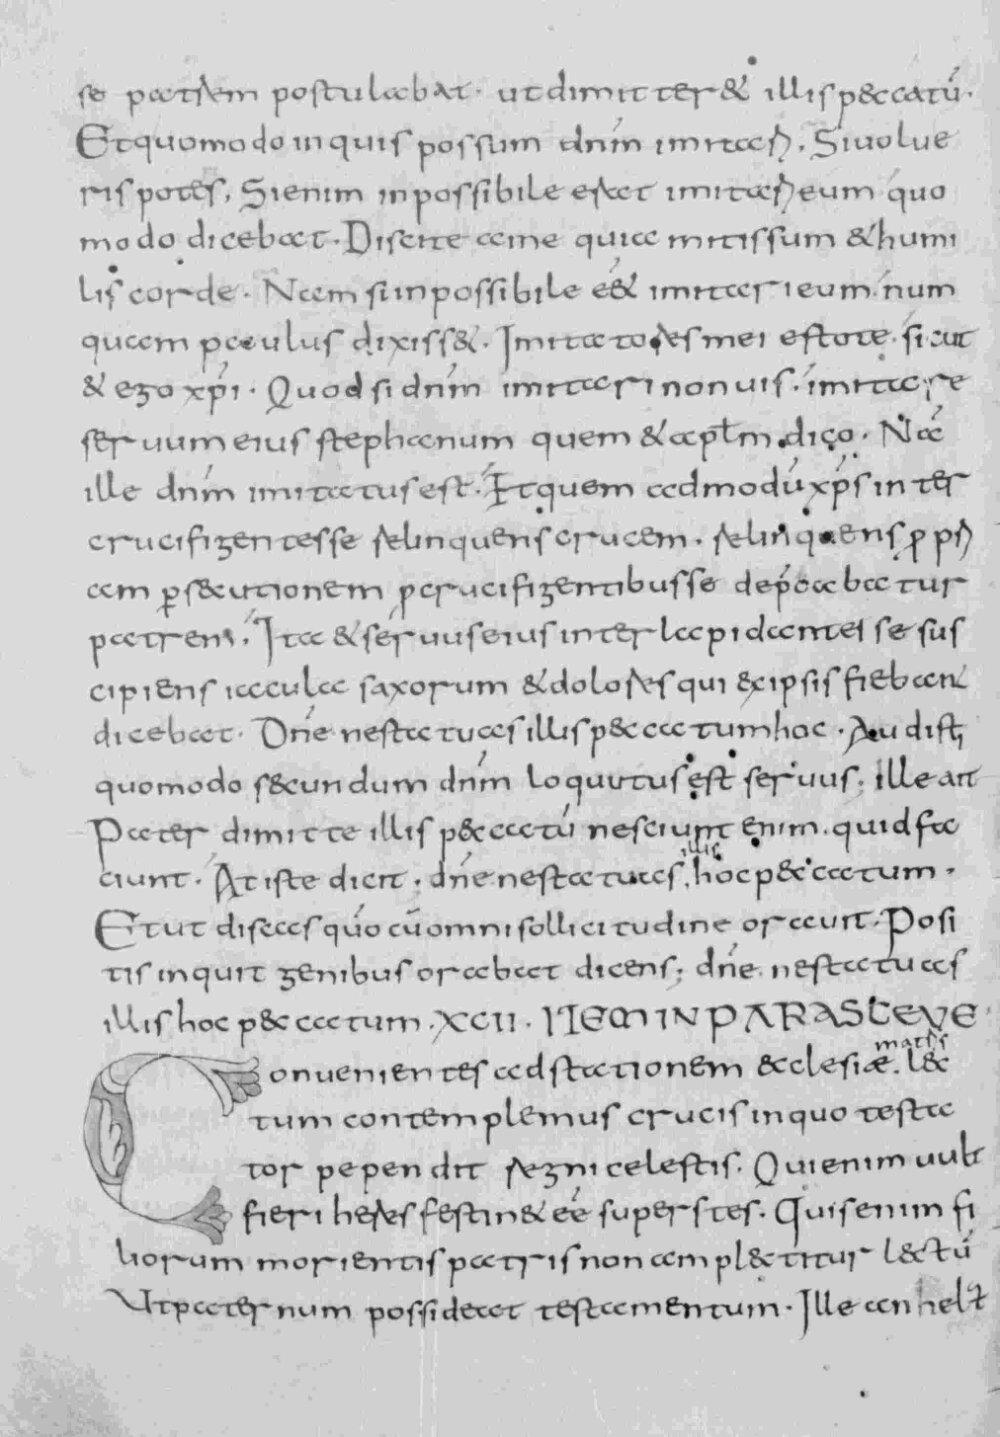 se patrem postulabat· ut dimitter& illis p&catū·
Et quomodo inquis possum dn̄m imitari. Si volue
ris potes, Si enim inpossibile es&et imitari eum quo
modo dicebat· Discite a me quia mitis sum & humi
lis corde· Nam si inpossibile e& imitari eum· num
quam paulus dixiss&· Imitatores mei estote· sicut
& ego xp̄i· Quod si dn̄m imitari non uis· imitare
seruum eius stephanum quem & ap̄lm dico· Nā
ille dn̄m imitatus est· Et quem admodū xp̄s inter
crucifigentes se relinquens crucem· relinquens
am ꝑs&cutionem ꝑ crucifigentibus se dep̄cabatur
patrem· Ita & seruus eius inter lapidantes se sus
cipiens iacula saxorum & dolores qui & ipsis fieban̄
dicebat· Dn̄e ne statuas illis p&catum hoc· Audisti
quomodo s&cundum dn̄m loquutus est seruus; Ille ait
Pater dimitte illis p&catū nesciunt enim· quid fa
ciunt· At iste dicit· dn̄e ne statuas illis hoc p&catum·
Et ut discas quo cū omni sollicitudine oraurit· Posi
tis inquit genibus orabat dicens; dn̄e ne statuas
illis hoc p&catum· XCII· ITEM IN PARASCEVE
Conuenientes ad stationem &clesiæ matris· l&c
tum contemplemus crucis in quo testa
tor pependit regni celestis· Qui enim uult
fieri heres festin& eē superstes· Quis enim fi
liorum morientis patris non ampl&titur l&ctū
Ut paternum possideat testamentum· Ille anhel&